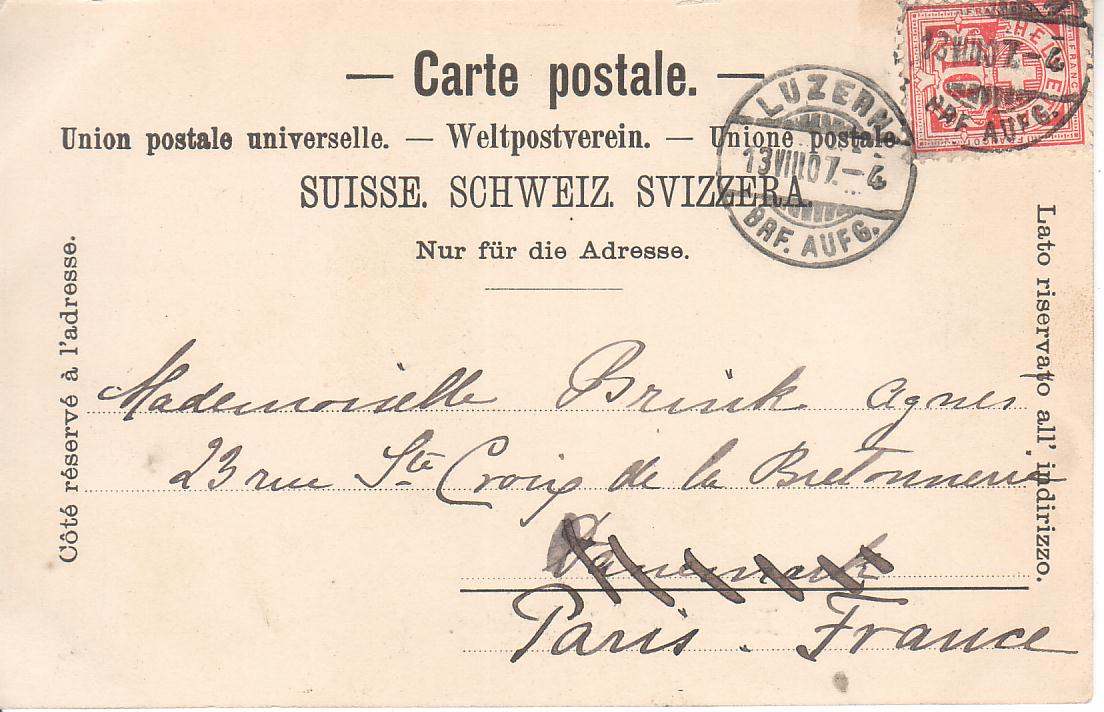 — Carte postale. —
Union postale universelle. — Weltpostverein. — Unione postale
SUISSE. SCHWEIZ. SVIZZERA.
Nur für die Adresse.
LUZERN
13.VIII.07.–4
BRF. AUFG.
FRANCO
HELVETIA
10
13VIII07.–4
BRF. AUFG.
Côté réservé à l'adresse.
Lato riservato all' indirizzo.
Mademoiselle Brink Agnes
23 rue Ste Croix de la Bretonnerie
Danemark
Paris. France